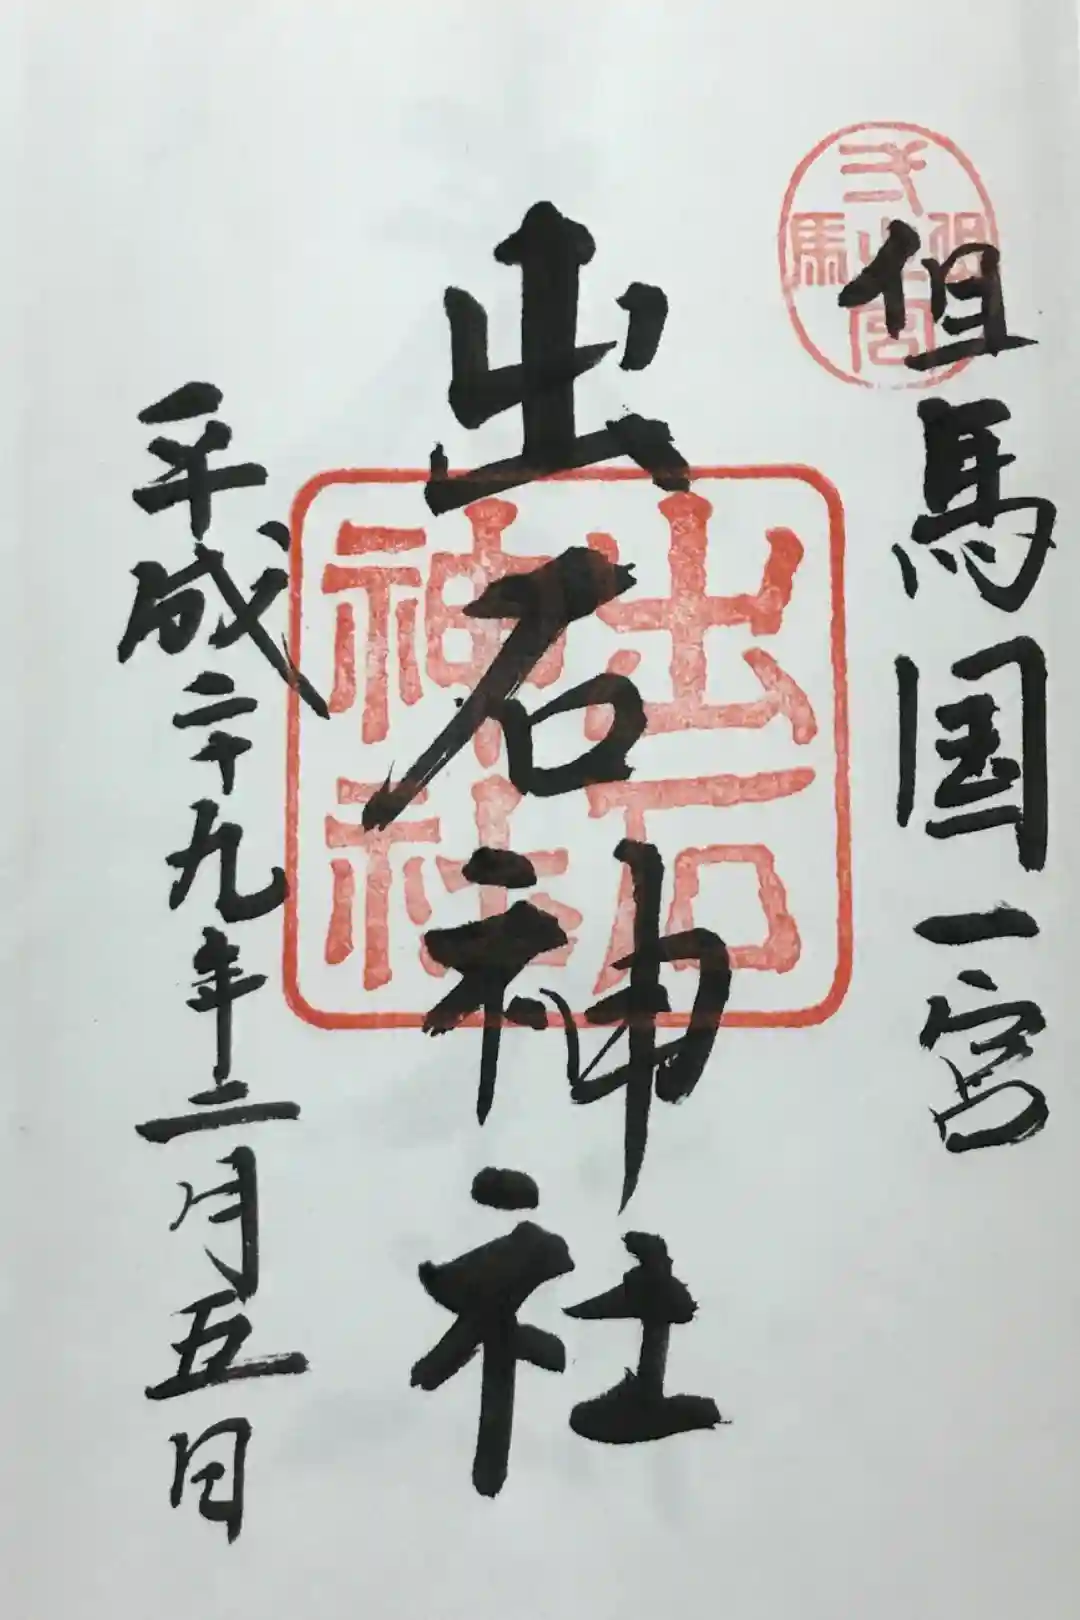 但馬国一宮
出石神社
平成二十九年二月五日
弌之宮
但馬
出石
神社